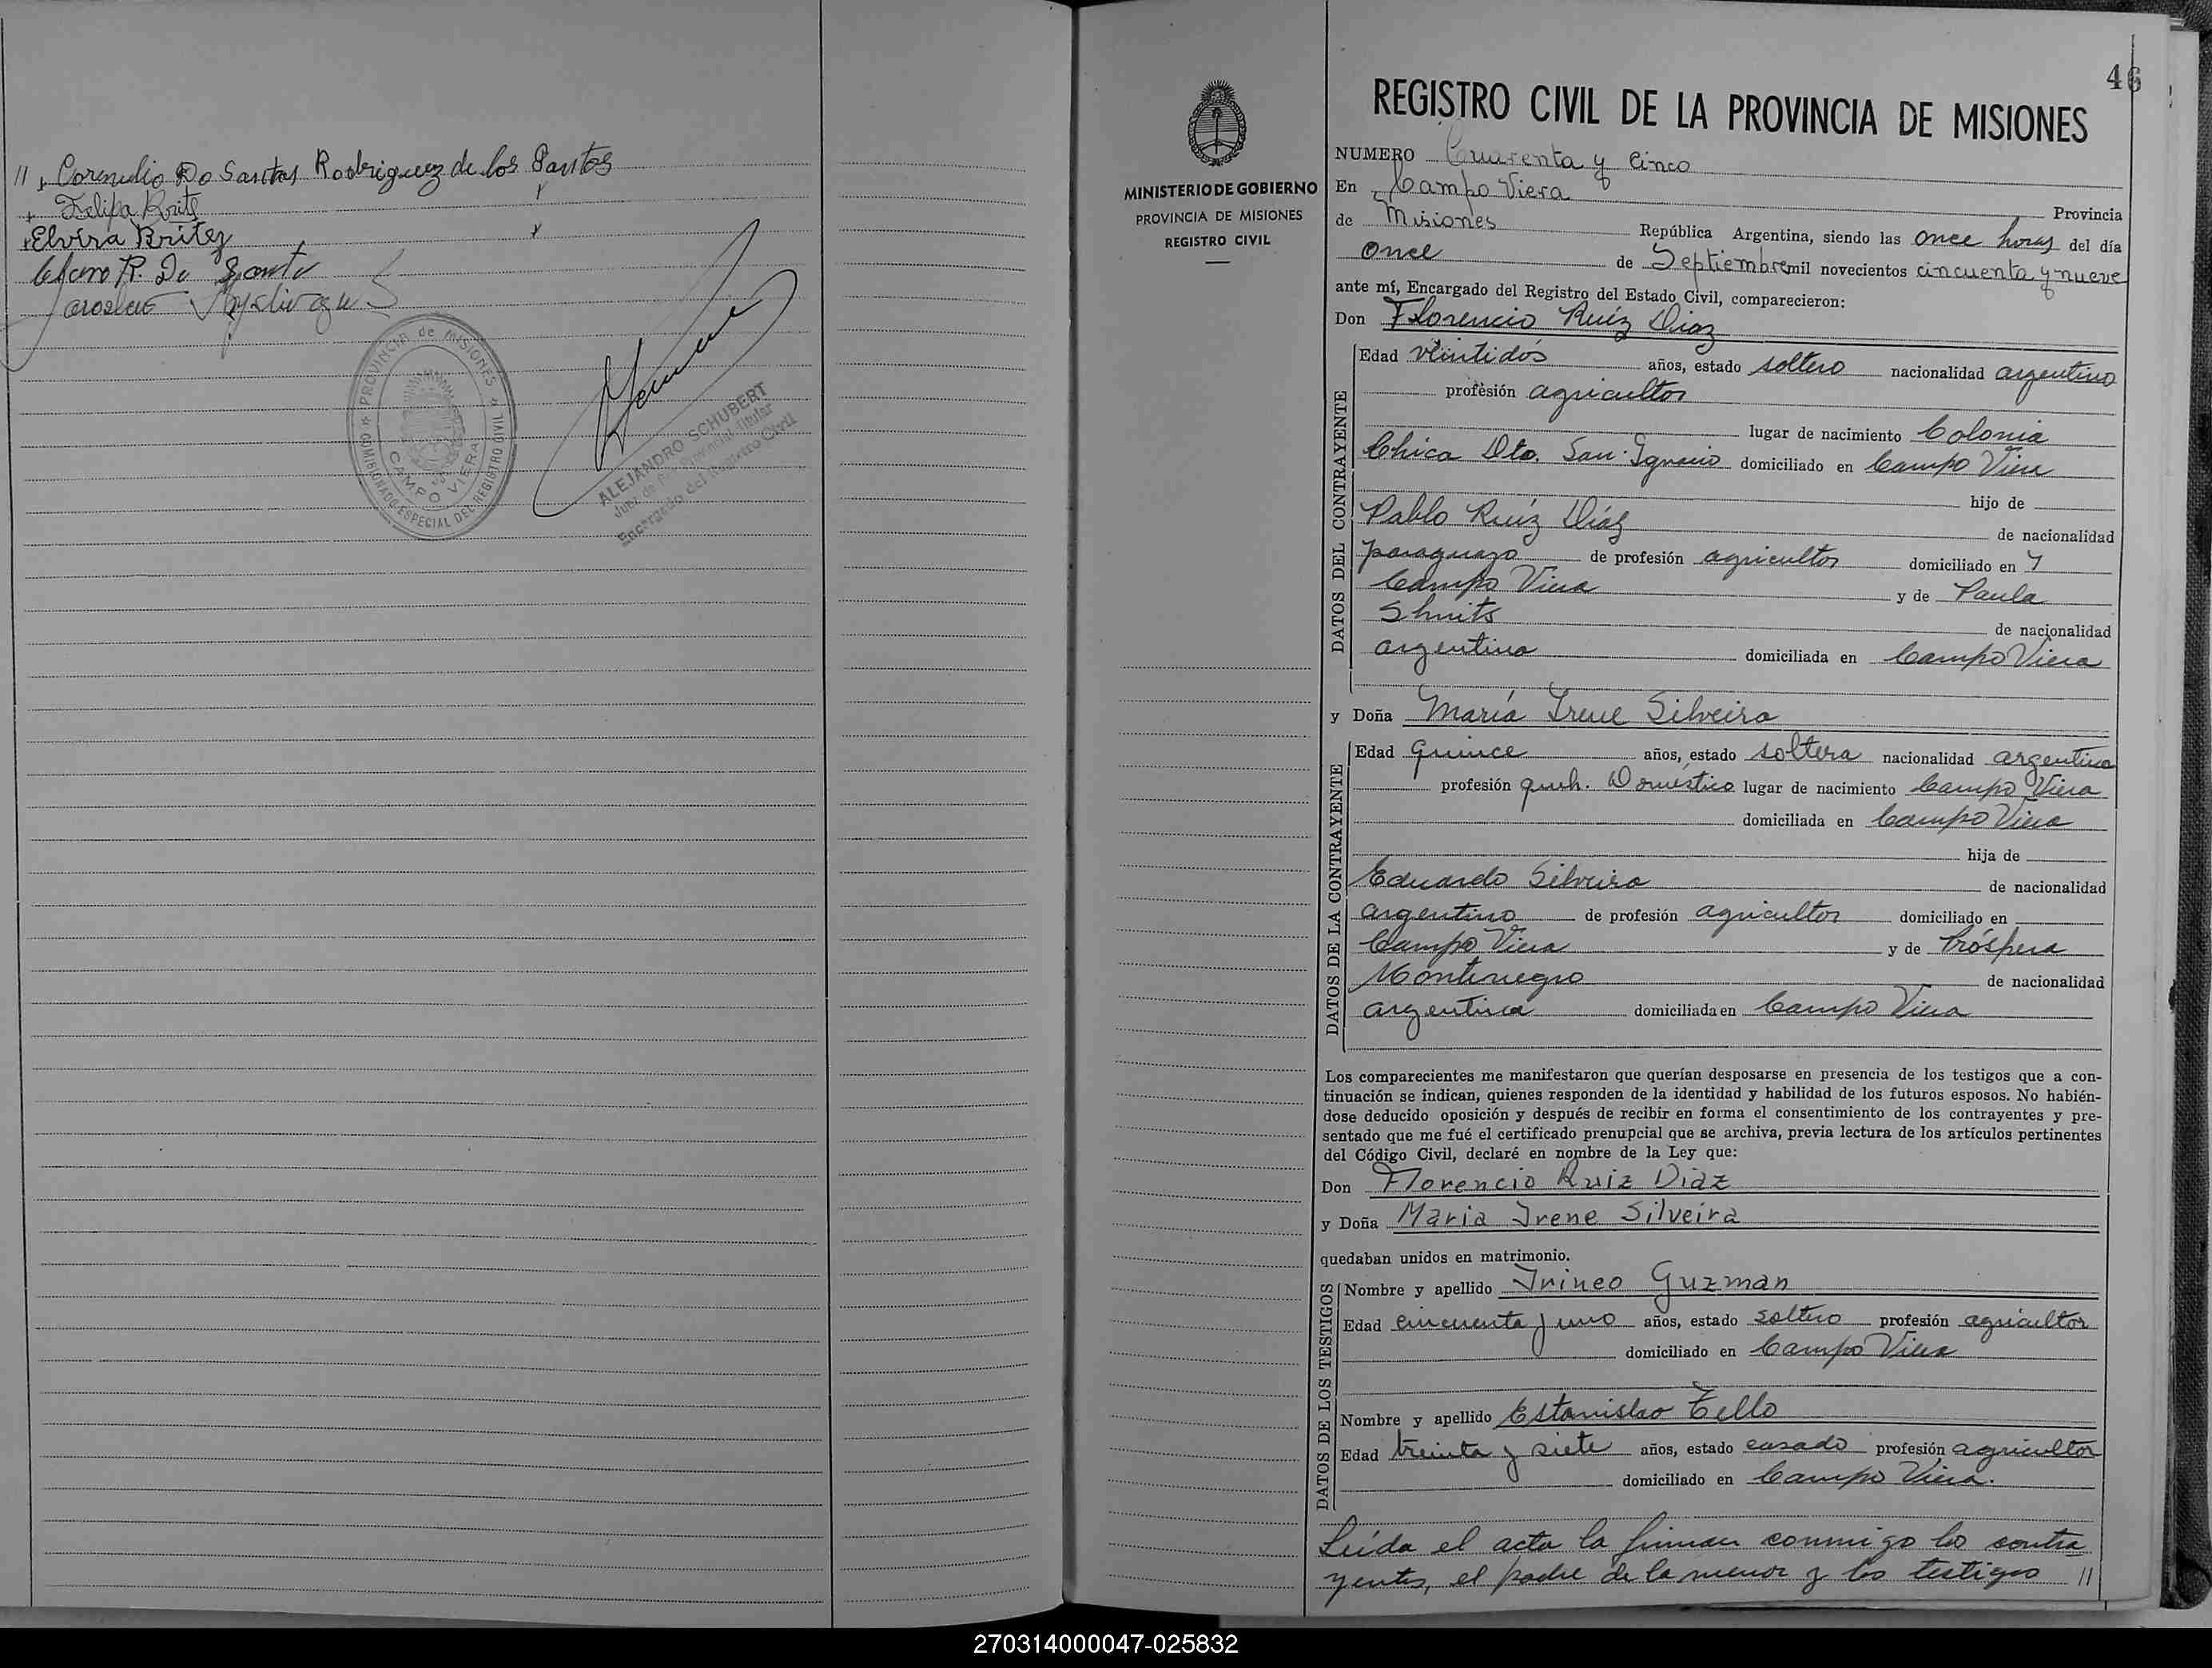 // Cornelio Do Santos Rodriguez de los Santos
Felipa Brite
Elvira Britez
R. Do Santo
PROVINCIA de MISIONES
COMISIONADO ESPECIAL DEL REGISTRO CIVIL
CAMPO VIERA
ALEJANDRO SCHUBERT
Juez de Paz Titular
Encargado del Registro Civil
46
MINISTERIO DE GOBIERNO
PROVINCIA DE MISIONES
REGISTRO CIVIL
REGISTRO CIVIL DE LA PROVINCIA DE MISIONES
NUMERO Cuarenta y cinco
En Campo Viera Provincia
de Misiones República Argentina, siendo las once horas del día
once de Septiembre mil novecientos cincuenta y nueve
ante mí, Encargado del Registro del Estado Civil, comparecieron:
Don Florencio Ruíz Díaz
DATOS DEL CONTRAYENTE
Edad veintidós años, estado soltero nacionalidad argentino
profesión agricultor
lugar de nacimiento Colonia
Chica Dto. San Ignacio domiciliado en Campo Viera
hijo de
Pablo Ruíz Díaz de nacionalidad
paraguayo de profesión agricultor domiciliado en
Campo Viera y de Paula
Shmits de nacionalidad
argentina domiciliada en Campo Viera
y Doña María Irene Silveira
DATOS DE LA CONTRAYENTE
Edad quince años, estado soltera nacionalidad argentina
profesión queh. Doméstico lugar de nacimiento Campo Viera
domiciliada en Campo Viera
hija de
Eduardo Silveira de nacionalidad
argentino de profesión agricultor domiciliado en
Campo Viera y de Próspera
Montenegro de nacionalidad
argentina domiciliada en Campo Viera
Los comparecientes me manifestaron que querían desposarse en presencia de los testigos que a con-
tinuación se indican, quienes responden de la identidad y habilidad de los futuros esposos. No habién-
dose deducido oposición y después de recibir en forma el consentimiento de los contrayentes y pre-
sentado que me fué el certificado prenupcial que se archiva, previa lectura de los artículos pertinentes
del Código Civil, declaré en nombre de la Ley que:
Don Florencio Ruiz Diaz
y Doña Maria Irene Silveira
quedaban unidos en matrimonio.
DATOS DE LOS TESTIGOS
Nombre y apellido Irineo Guzman
Edad cincuenta y uno años, estado soltero profesión agricultor
domiciliado en Campo Viera
Nombre y apellido Estanislao Tello
Edad treinta y siete años, estado casado profesión agricultor
domiciliado en Campo Viera.
Leída el acta la firman conmigo los contra
yentes, el padre de la menor y los testigos //
270314000047-025832